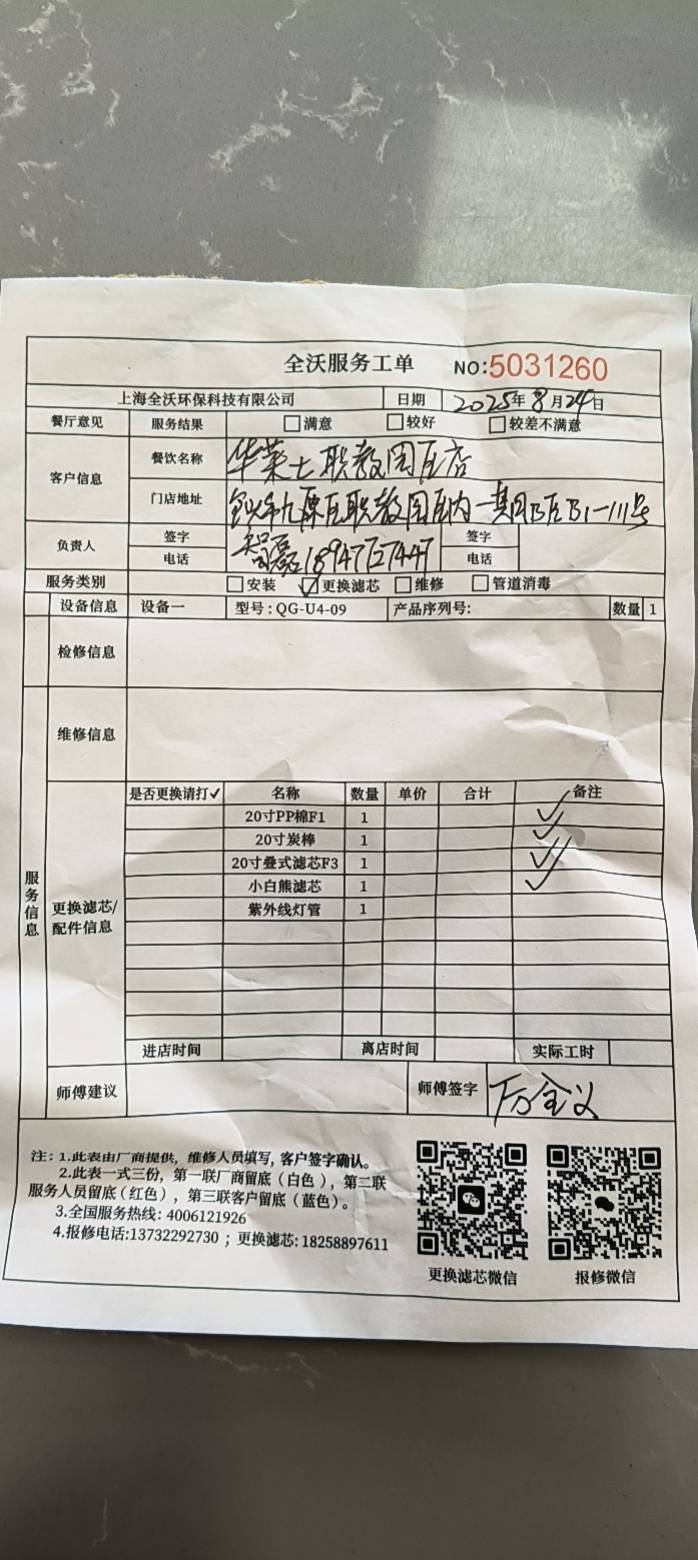 全沃服务工单 NO:5031260
上海全沃环保科技有限公司 日期 2025年8月24日
餐厅意见 服务结果 满意 较好 较差不满意
客户信息 餐饮名称 华莱士职教园区店
门店地址 九原区职教园区内一期B区B1-111号
负责人 签字 签字
电话 电话
服务类别 安装 ✓更换滤芯 维修 管道消毒
设备信息 设备一 型号:QG-U4-09 产品序列号: 数量 1
检修信息
维修信息
服务信息
更换滤芯/配件信息
是否更换请打✓ 名称 数量 单价 合计 备注
20寸PP棉F1 1 ✓
20寸炭棒 1 ✓
20寸叠式滤芯F3 1 ✓
小白熊滤芯 1 ✓
紫外线灯管 1
进店时间 离店时间 实际工时
师傅建议 师傅签字
注:1.此表由厂商提供,维修人员填写,客户签字确认。
2.此表一式三份,第一联厂商留底(白色),第二联
服务人员留底(红色),第三联客户留底(蓝色)。
3.全国服务热线:4006121926
4.报修电话:13732292730;更换滤芯:18258897611
更换滤芯微信 报修微信